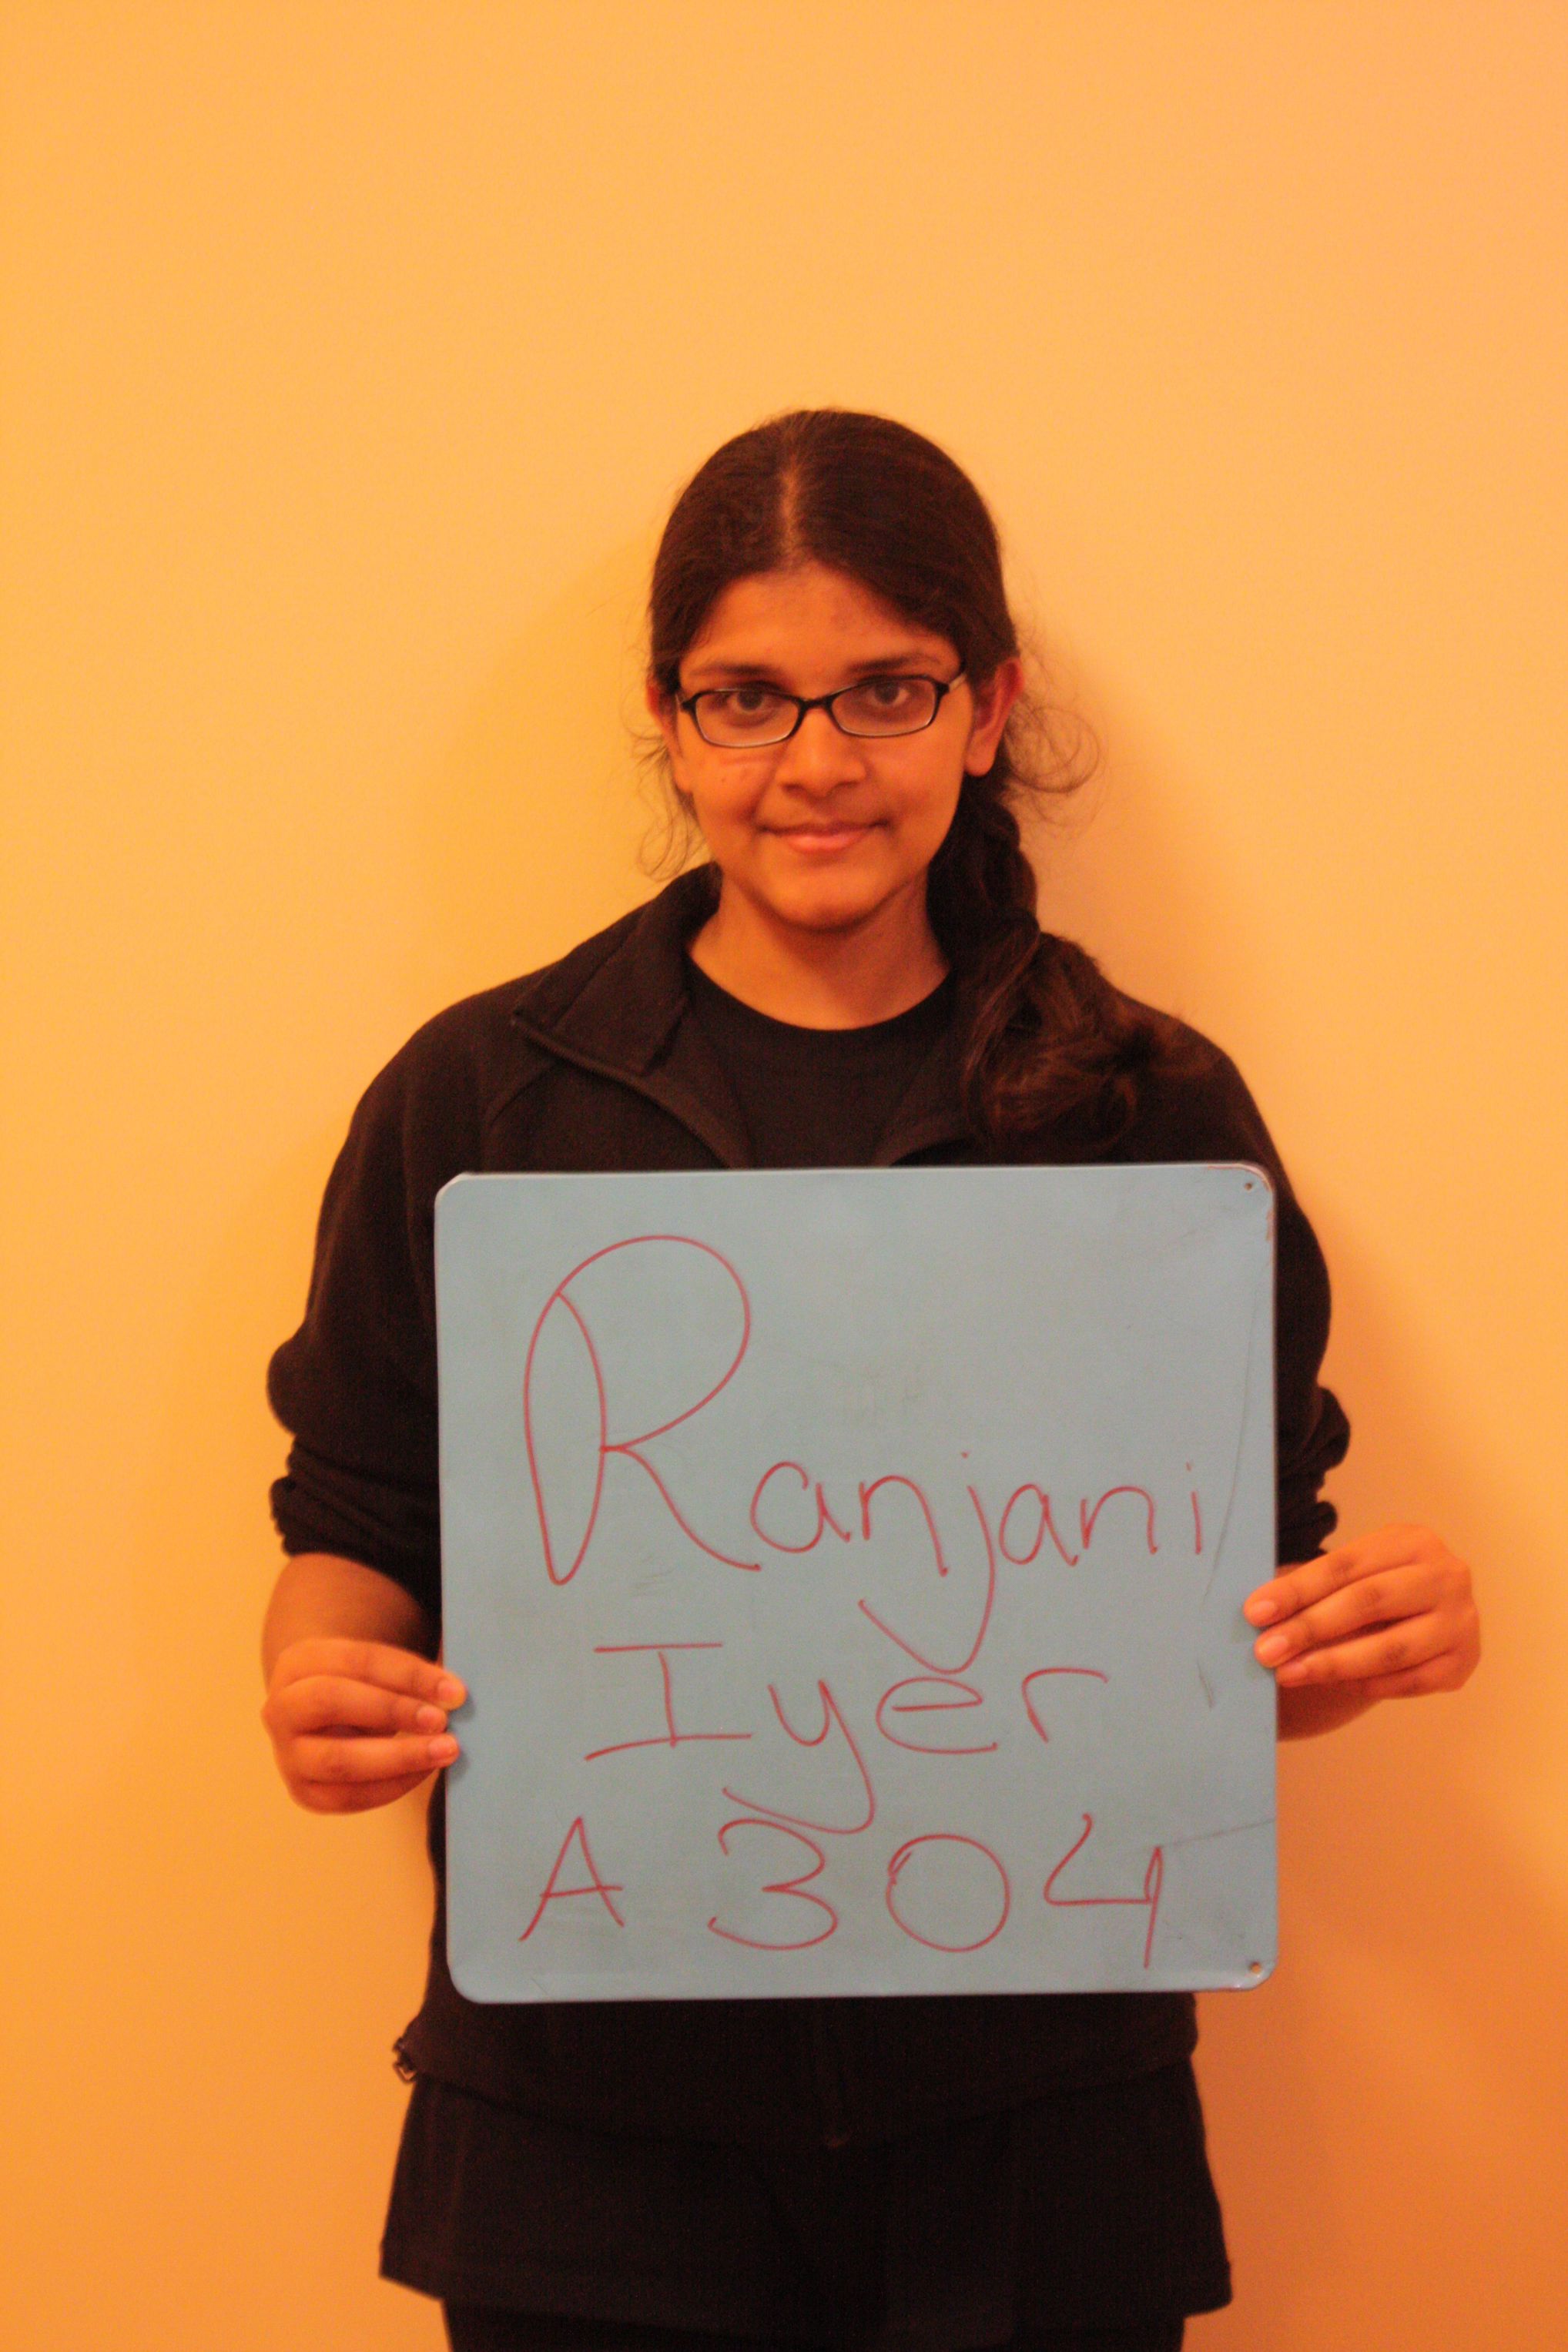 Ranjani
Iyer
A 304